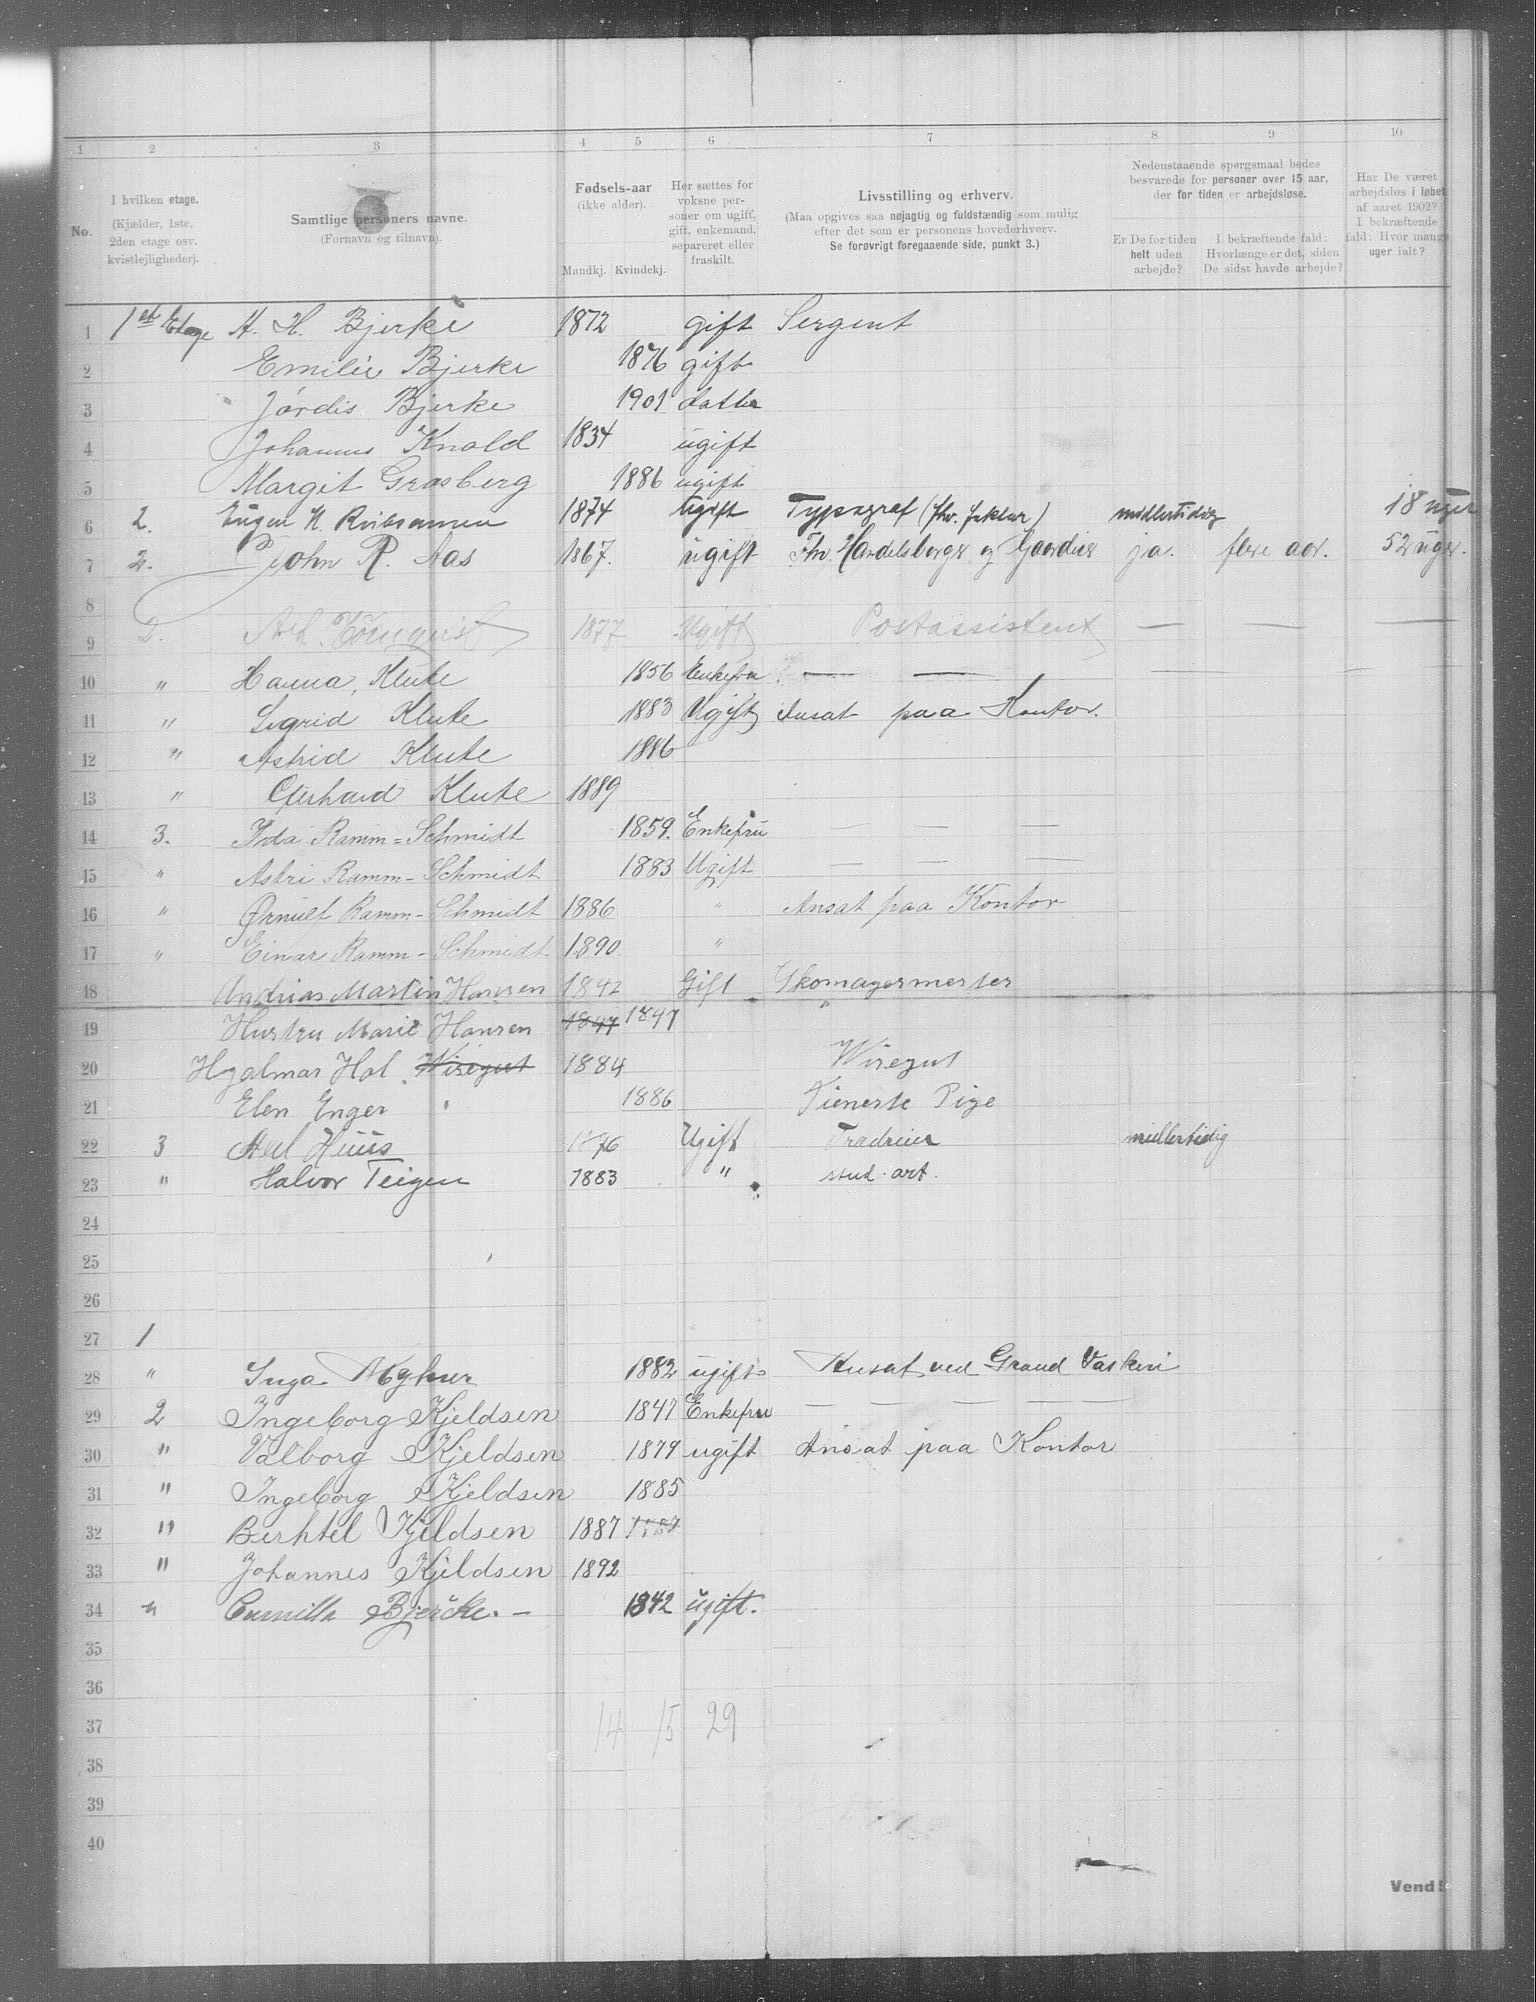 1 2 3 4 5 6 7 8 9 10
No. I hvilken etage. (Kjælder, 1ste, 2den etage osv. kvistlejligheder). Samtlige personers navne. (Fornavn og tilnavn). Fødsels-aar (ikke alder). Mandkj. Kvindekj. Her sættes for voksne personer om ugift, gift, enkemand, separeret eller fraskilt. Livsstilling og erhverv. (Maa opgives saa nøjagtig og fuldstændig som mulig efter det som er personens hovederhverv. Se forøvrigt foregaaende side, punkt 3.) Nedenstaaende spørgsmaal bedes besvarede for personer over 15 aar, der for tiden er arbejdsløse. Er De for tiden helt uden arbejde? I bekræftende fald: Hvorlænge er det, siden De sidst havde arbejde? Har De været arbejdsløs i løbet af aaret 1902? I bekræftende fald: Hvor mange uger ialt?
1 1et Etage A. H. Bjerke 1872 gift Sergent
2 Emilie Bjerke 1876 gift
3 Jordis Bjerke 1901 datter
4 Johannes Knold 1834 ugift
5 Margit Grasberg 1886 ugift
6 2. Eugen H. 1874 ugift Typograf (fhv. faktor) midlertidig 18 uger
7 2. John R. Aas 1867. ugift Fhv. Handelsborger og Gaardeier ja. flere aar. 52 uger.
8
9 2. Törnqvist 1877 Ugift Postassistent — — —
10 " Hanna Klute 1856 Enkefru — —
11 " Sigrid Klute 1883 Ugift Ansat paa Kontor.
12 " Astrid Klute 1886
13 " Gerhard Klute 1889
14 3. Ida Ramm=Schmidt 1859. Enkefru — — —
15 " Astri Ramm-Schmidt 1883 Ugift — — —
16 " Ørnulf Ramm-Schmidt 1886 " Ansat paa Kontor
17 " Einar Ramm-Schmidt 1890. "
18 Andrias Martin Hansen 1842 Gift Skomagermester
19 Hustru Marie Hansen 1847 1847 "
20 Hjalmar Hol Wisegut 1884 Wisegut
21 Elen Enger 1886 Tieneste Pige
22 3 Axel Huus 1876 Ugift midlertidig
23 " Halvor Teigen 1883 " stud. art.
24
25
26
27 1
28 " Inga 1882 ugift Ansat ved Grand Vaskeri
29 2 Ingeborg Kjeldsen 1847 Enkefru — — — — —
30 " Valborg Kjeldsen 1879 ugift Ansat paa Kontor
31 " Ingeborg Kjeldsen 1885
32 " Berhtel Kjeldsen 1887 1887
33 " Johannes Kjeldsen 1892
34 " Camilla Bjercke. — 1842 ugift.
35
36
37 14 15 29
38
39
40
Vend!